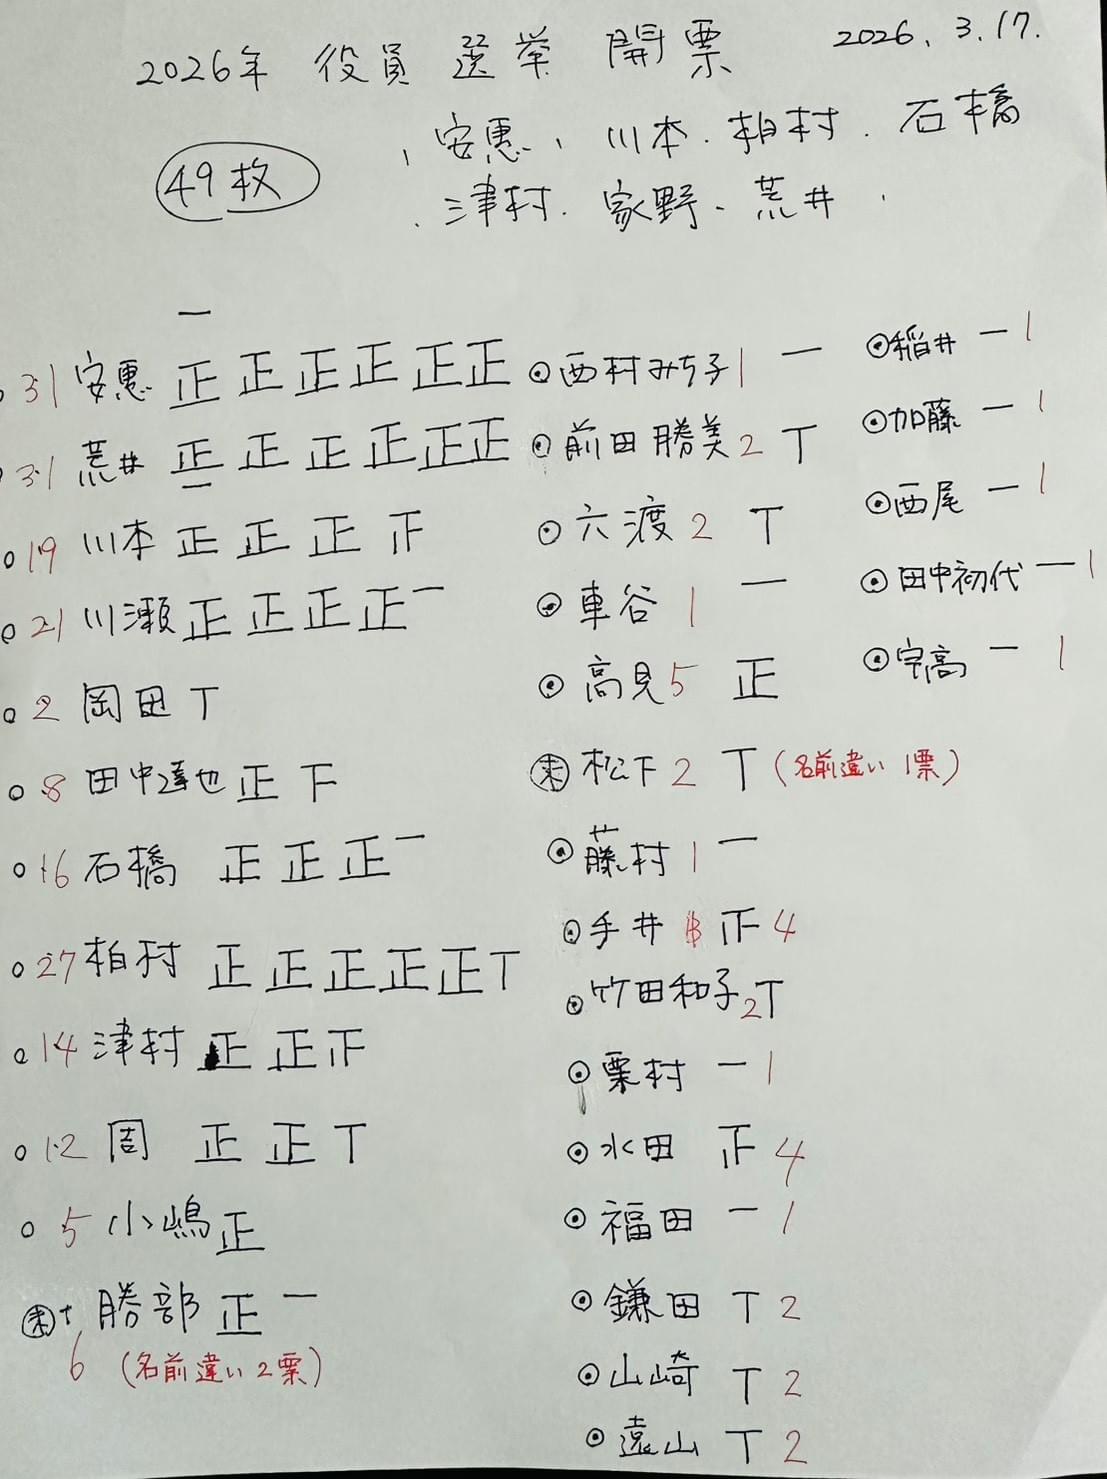 2026年 役員 選挙 開票 2026. 3. 17.
49枚
、安惠、川本.柏村.石橋
.津村.家野、荒井.
一
31 安惠 正 正 正 正 正 正
31 荒井 正 正 正 正 正 正
一
○ 19 川本 正 正 正 正
○ 21 川瀬 正 正 正 正 一
○ 2 岡田 T
○ 8 田中達也 正 下
○ 16 石橋 正 正 正 一
○ 27 柏村 正 正 正 正 正 T
○ 14 津村 正 正 下
○ 12 周 正 正 T
○ 5 小嶋 正
勝部 正 一
6 (名前違い2票)
◎西村みち子 1 一
◎前田勝美 2 T
◎六渡 2 T
◎車谷 1 一
◎高見 5 正
松下 2 T (名前違い 1票)
◎藤村 1 一
◎手井 正 4
◎竹田和子 2 T
◎栗村 一 1
◎水田 正 4
◎福田 一 1
◎鎌田 T 2
◎山崎 T 2
◎遠山 T 2
◎稲井 一 1
◎加藤 一 1
◎西尾 一 1
◎田中初代 一 1
◎宇高 一 1